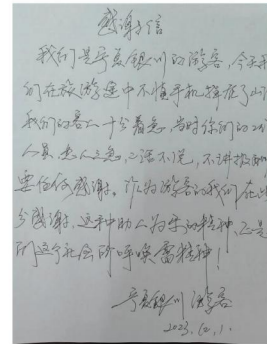 感谢信
我们是宁夏银川的游客，今天我
们在旅游途中不慎手机掉在了山
我们的客人十分着急，当时你们的工作
人员急人之急，二话不说，不讲报酬
要任何感谢。作为游客的我们在此
分感谢，这种助人为乐的精神，正是
们这个社会所呼唤需精神！
宁夏银川 游客
2023.10.1.